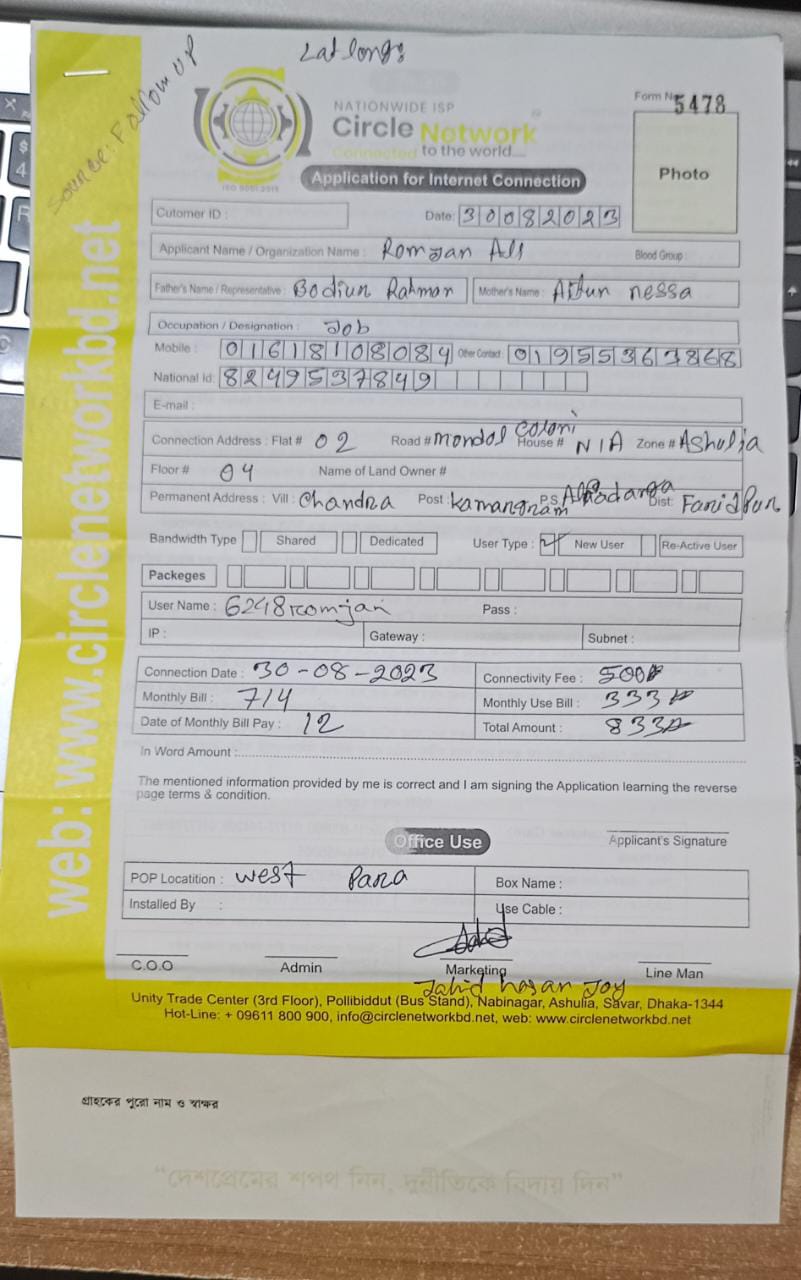 Lat long:
Source: Follow UP
NATIONWIDE ISP
Circle Network
Connected to the world....
ISO 9001:2015
Form No 5478
Photo
Application for Internet Connection
Cutomer ID :
Date: 30082023
Applicant Name / Organization Name : Romjan Ali
Blood Group :
Father's Name / Representative : Bodiun Rahman
Mother's Name : Aitun nessa
Occupation / Designation : Job
Mobile : 01618108084
Other Contact : 01955363868
National Id: 8249537849
E-mail :
Connection Address : Flat # 02 Road # mondol Coloni House # N/A Zone # Ashulia
Floor # 04 Name of Land Owner #
Permanent Address : Vill : Chandra Post : Kamangram P.S. Alfadanga Dist: Faridpur
Bandwidth Type Shared Dedicated User Type : New User Re-Active User
Packeges
User Name : 6248romjan Pass :
IP : Gateway : Subnet :
Connection Date : 30-08-2023 Connectivity Fee : 500
Monthly Bill : 714 Monthly Use Bill : 333
Date of Monthly Bill Pay : 12 Total Amount : 833
In Word Amount :
The mentioned information provided by me is correct and I am signing the Application learning the reverse
page terms & condition.
Office Use
Applicant's Signature
POP Locatition : West Para Box Name :
Installed By : Use Cable :
C.O.O Admin Marketing Line Man
Jahid hasan Joy
Unity Trade Center (3rd Floor), Pollibiddut (Bus Stand), Nabinagar, Ashulia, Savar, Dhaka-1344
Hot-Line: + 09611 800 900, info@circlenetworkbd.net, web: www.circlenetworkbd.net
web: www.circlenetworkbd.net
গ্রাহকের পুরো নাম ও স্বাক্ষর
“দেশপ্রেমের শপথ নিন, দুর্নীতিকে বিদায় দিন”